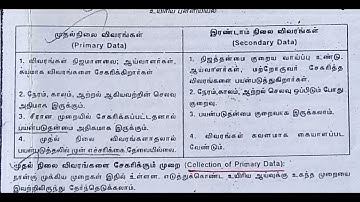 உயிரிய புள்ளியியல்
முதல்நிலை விவரங்கள்
(Primary Data)
இரண்டாம் நிலை விவரங்கள்
(Secondary Data)
1. விவரங்கள் நிஜமானவை; ஆய்வாளர்கள்,
சுயமாக விவரங்களை சேகரிக்கிறார்கள்
2. நேரம், காலம், ஆற்றல் ஆகியவற்றின் செலவு
அதிகமாக இருக்கும்.
3. சீரான முறையில் சேகரிக்கப்பட்டதனால்
பயன்படுத்தன்மை அதிகமாக இருக்கும்.
4. முதல் நிலை விவரங்களாதலால்
பயன்படுத்துதலில் முன் எச்சரிக்கை தேவையில்லை.
1. நிஜத்தன்மை குறைய வாய்ப்பு உண்டு.
ஆய்வாளர்கள், மற்றோருவர் சேகரித்த
விவரங்களை பயன்படுத்துகிறார்கள்.
2. நேரம்,காலம்,ஆற்றல் செலவு ஒப்பிடும் போது
குறைவு.
3. பயன்படுதன்மை குறைவாக இருக்கலாம்.
4. விவரங்கள் கவனமாக கையாளப்பட
வேண்டும்.
முதல் நிலை விவரங்களை சேகரிக்கும் முறை (Collection of Primary Data):
நான்கு முக்கிய முறைகள் இதில் உள்ளன. எடுத்துக்கொண்ட உயிரிய ஆய்வுக்கு உகந்த முறையை
இவற்றிலிருந்து தேர்ந்தெடுக்கலாம்.